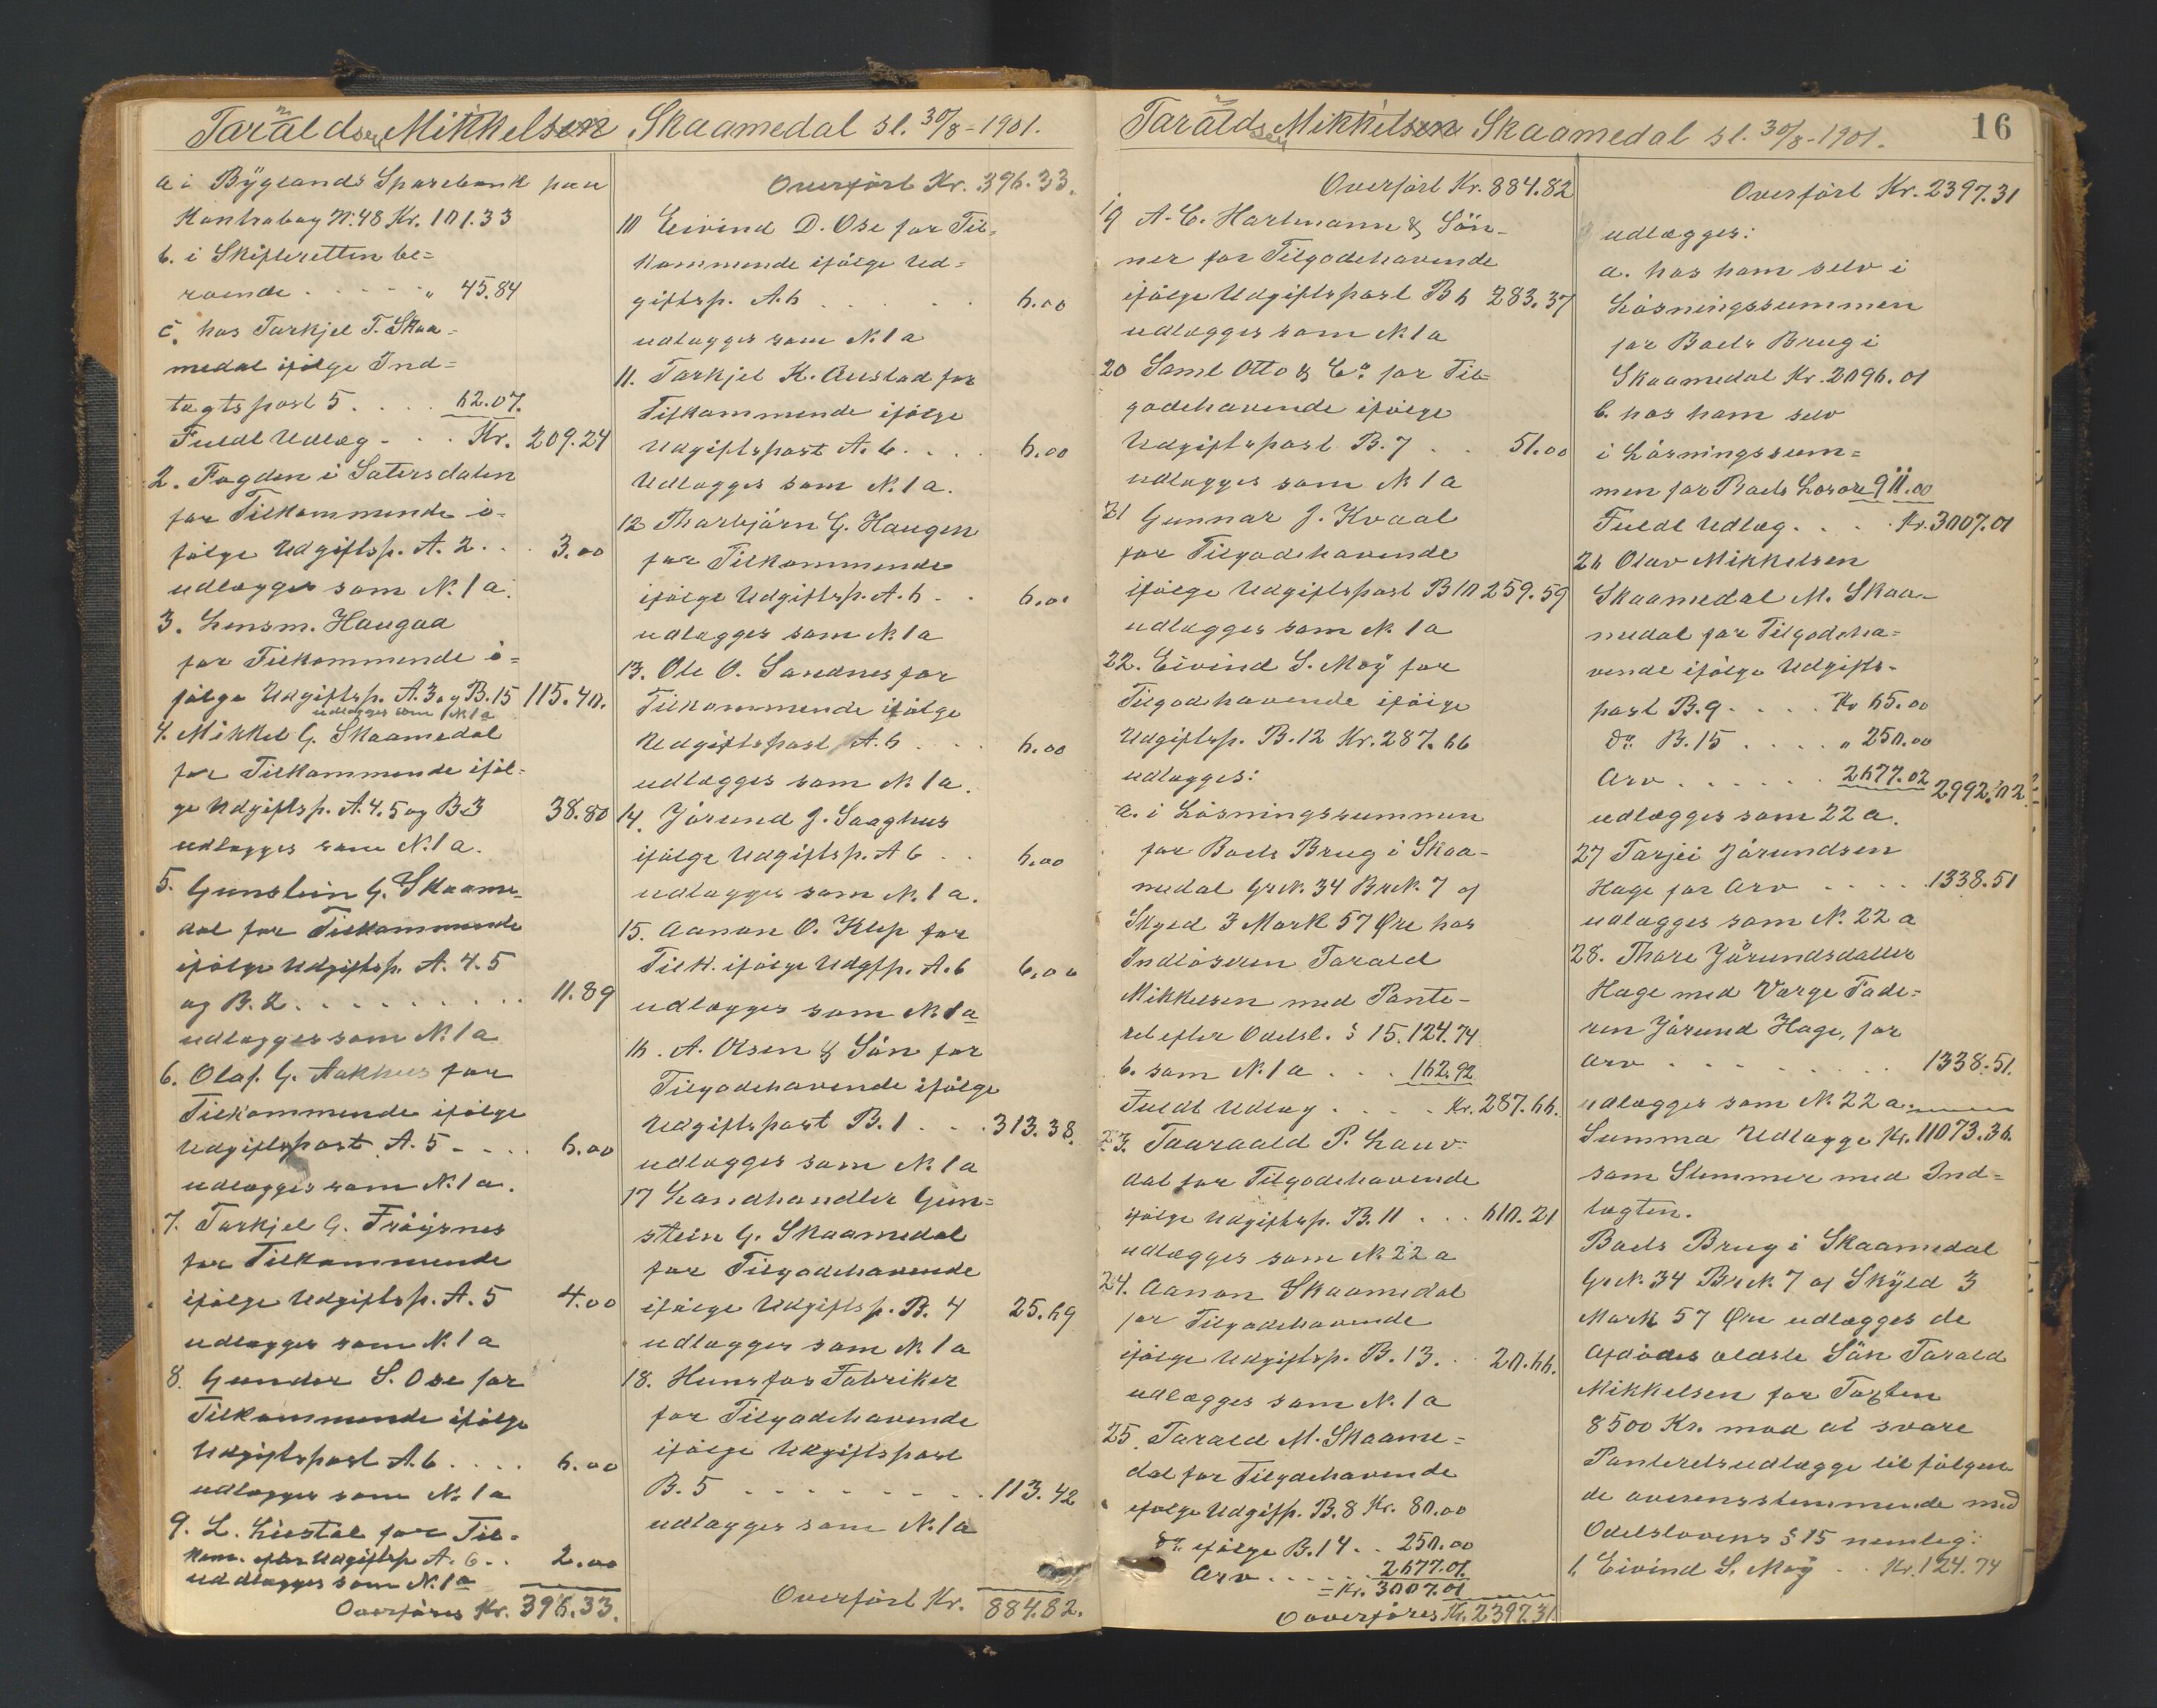 Taraldsen Mikkelsen Skaamedal sl. 30/8-1901.
a i Bÿglands Sparebank paa
Kontrabog N. 48 Kr. 101.33
b. i Skifteretten be=
roende . . . . . „ 45.84
c. hos Tarkjel T. Skaa=
medal ifølge Ind=
tægtspost 5 . . . . 62.07.
Fuldt Udlæg - . . Kr. 209.24
2. Fogden i Sætersdalen
for Tilkommende i-
følge Udgiftsp. A. 2 . . . 3.00
udlægges som N. 1 a.
3. Lensm. Haugaa
for Tilkommende i=
følge Udgiftsp. A. 3 og B. 15 115.40.
udlægges som N. 1 a
4. Mikkel G. Skaamedal
for Tilkommende iføl=
ge Udgiftsp. A. 4. 5 og B3 38.80
udlægges som N. 1 a.
5. Gunstein G. Skaame-
dal for Tilkommende
ifølge Udgiftsp. A. 4. 5
og B. 2 . . . . . . . . . . 11.89
udlægges som N. 1 a
6. Olaf G. Aakhus for
Tilkommende ifølge
Udgiftspost A. 5 - . . . 6.00
udlægges som N. 1 a.
7. Tarkjel G. Frøÿsnes
for Tilkommende
ifølge Udgiftsp. A. 5 4.00
udlægges som N. 1 a
8. Gunder S. Ose for
Tilkommende ifølge
Udgiftspost A. 6 . . . . 6.00
udlægges som N. 1 a
9. L. Liestøl for Til=
kom. efter Udgiftsp A. 6 . . 2.00
uddlægges som N. 1 a
Overføres Kr. 396.33.
Overført Kr. 396.33.
10 Eivind D. Ose for Til=
kommende ifølge Ud=
giftsp. A. 6 . . . . . . 6.00
udlægges som N. 1 a
11. Tarkjel K. Austad for
Tilkommende ifølge
Udgiftspost A. 6. . . . . 6.00
Udlægges som N. 1 a.
12 Thorbjørn G. Haugen
for Tilkommende
ifølge Udgiftsp. A. 6 - . 6.00
udlægges som N. 1 a
13. Ole O. Sandnes for
Tilkommende ifølge
Udgiftspost A. 6 . . . 6.00
udlægges som N. 1 a.
14. Jørund J. Saaghus
ifølge Udgiftsp. A 6 . . 6.00
udlægges som N. 1 a.
15. Aanon O. Klep for
Tilk. ifølge Udgfp. A. 6 6.00
udlægges som N. 1 a
16. A. Olsen & Søn for
Tilgodehavende ifølge
Udgiftspost B. 1 . . . 313.38.
udlægges som N. 1 a
17 Landhandler Gun=
stein G. Skaamedal
for Tilgodehavende
ifølge Udgiftsp. B. 4 25.69
udlægges som N. 1 a
18. Hunsfos Fabriker
for Tilgodehavende
ifølge Udgiftspost
B. 5 - . . . . . . . . 113.42
udlægges som N. 1 a
Overført Kr. 884.82.
Taraldsen Mikkelsen Skaamedal sl. 30/8-1901.
16
Overført Kr. 884.82
19 A. C. Hartmann & Søn-
ner for Tilgodehavende
ifølge Udgiftspost B 6 283.37
udlægges som N. 1 a
20 Saml Otto & Co for Til=
godehavende ifølge
Udgiftspost B. 7 . . 51.00
udlægges som N. 1 a
21 Gunnar J. Kvaal
for Tilgodehavende
ifølge Udgiftspost B 10 259.59
udlægges som N. 1 a
22. Eivind S. Moÿ for
Tilgodhavende ifølge
Udgiftsp. B. 12 Kr. 287.66
udlægges:
a. i Løsningssummen
for Boets Brug i Skaa-
medal Gr.N. 34 Br.N. 7 af
Skyld 3 Mark 57 Øre hos
Indløseren Tarald
Mikkelsen med Pante-
ret efter Odelsl. § 15. 124.74
b. som N. 1 a . . . 162.92
Fuldt Udlæg . . . . Kr. 287.66.
23. Taaraald P. Lauv=
dal for Tilgodehavende
ifølge Udgiftsp. B. 11 . . . 610.21
udlægges som N. 22 a
24. Aanon Skaamedal
for Tilgodehavende
ifølge Udgiftsp. B. 13. . . 20.66.
udlægges som N. 1 a
25. Tarald M. Skaame=
dal for Tilgodehavende
ifølge Udgifp. B. 8 Kr. 80.00
Do. ifølge B. 14 . . 250.00
Arv . . . . . . 2677.01
= Kr. 3007.01
Overføres Kr. 2397.31
Overført Kr. 2397.31
udlægges:
a. hos ham selv i
Løsningssummen
for Boets Brug i
Skaamedal Kr. 2096.01
b. hos ham selv
i Løsningssum=
men for Boets Løsøre 911.00
Fuldt Udlæg. . . . Kr. 3007.01
26 Olav Mikkelsen
Skaamedal M. Skaa-
medal for Tilgodeha=
vende ifølge Udgifts-
post B. 9 - . . . . Kr 65.00
Do. B. 15 . . . . . „ 250.00
Arv . . . . . . 2677.02 2992.02
udlægges som 22 a.
27 Tarjei Jørundsen
Hage for Arv . . . . . 1338.51
udlægges som N. 22 a
28. Thore Jørundsdatter
Hage med Værge Fade=
ren Jørund Hage, for
Arv . . . . . . . . . 1338.51.
udlægges som N. 22 a.
Summa Udlægge Kr. 11073.36.
som Stemmer med Ind=
tægten.
Boets Brug i Skaamedal
Gr.N. 34 Br.N. 7 af Skÿld 3
Mark 57 Øre udlægges de
Afdødes ældste Søn Tarald
Mikkelsen for Taxten
8500 Kr. mod at svare
Panteretsudlægge til følgen
de overensstemmende med
Odelslovens § 15 nemlig:
1. Eivind S. Moÿ . . . Kr. 124.74